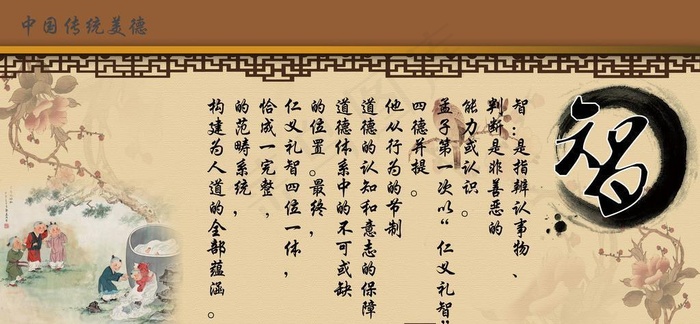 中国传统美德
智
智：是指辨认事物、
判断是非善恶的
能力或认识。
孟子第一次以“仁义礼智”
四德并提。
他从行为的节制
道德的认知和意志的保障
道德体系中的不可或缺
的位置。最终，
仁义礼智四位一体，
恰成一完整，
的范畴系统，
构建为人道的全部蕴涵。